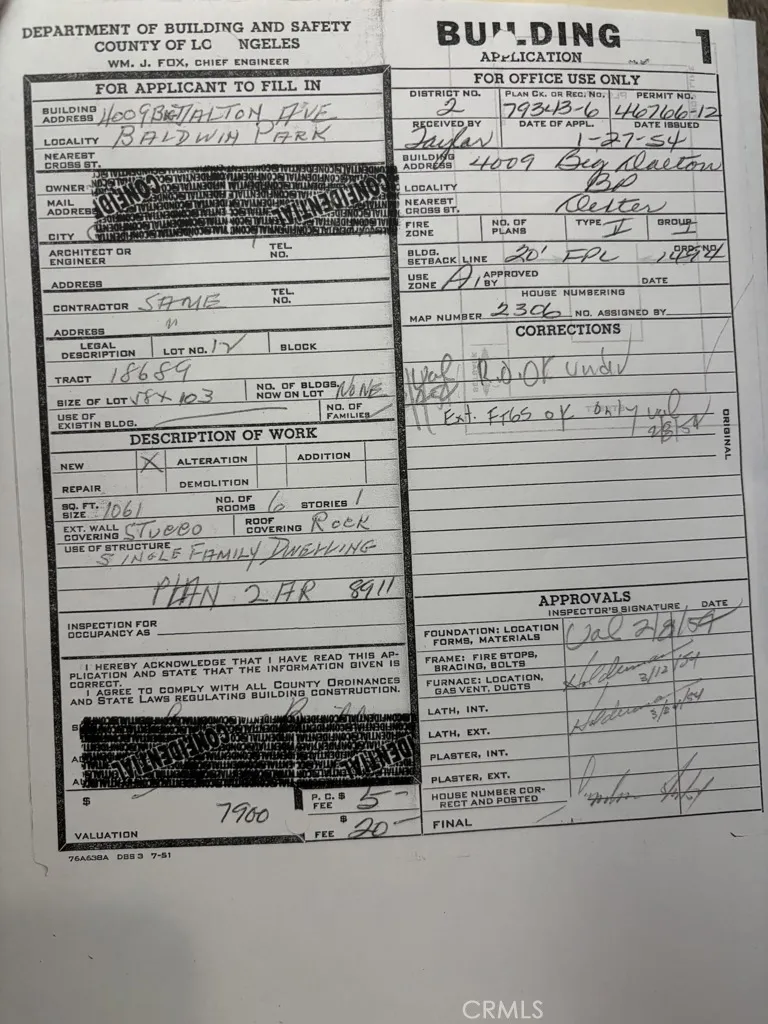 DEPARTMENT OF BUILDING AND SAFETY
COUNTY OF LO NGELES
WM. J. FOX, CHIEF ENGINEER
BUILDING
APPLICATION
1
FOR APPLICANT TO FILL IN
BUILDING ADDRESS 4009 DALTON AVE
LOCALITY BALDWIN PARK
NEAREST CROSS ST.
OWNER
MAIL ADDRESS
CITY
CONFIDENTIAL
ARCHITECT OR ENGINEER TEL. NO.
ADDRESS
CONTRACTOR SAME TEL. NO.
ADDRESS "
LEGAL DESCRIPTION LOT NO. 12 BLOCK
TRACT 18689
SIZE OF LOT 58 x 103 NO. OF BLDGS. NOW ON LOT NONE
USE OF EXISTIN BLDG. NO. OF FAMILIES
DESCRIPTION OF WORK
NEW X ALTERATION ADDITION
REPAIR DEMOLITION
SQ. FT. SIZE 1061 NO. OF ROOMS 6 STORIES 1
EXT. WALL COVERING STUCCO ROOF COVERING ROCK
USE OF STRUCTURE SINGLE FAMILY DWELLING
PLAN 2AR 8911
INSPECTION FOR OCCUPANCY AS
I HEREBY ACKNOWLEDGE THAT I HAVE READ THIS AP-
PLICATION AND STATE THAT THE INFORMATION GIVEN IS
CORRECT.
I AGREE TO COMPLY WITH ALL COUNTY ORDINANCES
AND STATE LAWS REGULATING BUILDING CONSTRUCTION.
CONFIDENTIAL
$ 7900
VALUATION
P. C. $ FEE 5-
$ FEE 20-
76A638A DBS 3 7-51
FOR OFFICE USE ONLY
DISTRICT NO. 2 PLAN CK. OR REC. NO. 79343-6 PERMIT NO. 46766-12
RECEIVED BY Taylor DATE OF APPL. DATE ISSUED 1-27-54
BUILDING ADDRESS 4009 Big Dalton
LOCALITY BP
NEAREST CROSS ST.
FIRE ZONE NO. OF PLANS TYPE V GROUP I
BLDG. SETBACK LINE 20' EPL ORD. NO. 1494
USE ZONE A1 APPROVED BY DATE
HOUSE NUMBERING
MAP NUMBER 2306 NO. ASSIGNED BY
CORRECTIONS
R.D. OK under
Ext. Ftgs ok only val
2/8/54
ORIGINAL
APPROVALS
INSPECTOR'S SIGNATURE DATE
FOUNDATION: LOCATION FORMS, MATERIALS Val 2/8/54
FRAME: FIRE STOPS, BRACING, BOLTS
FURNACE: LOCATION, GAS VENT, DUCTS 3/12/54
LATH, INT.
LATH, EXT.
PLASTER, INT.
PLASTER, EXT.
HOUSE NUMBER CORRECT AND POSTED
FINAL
CRMLS